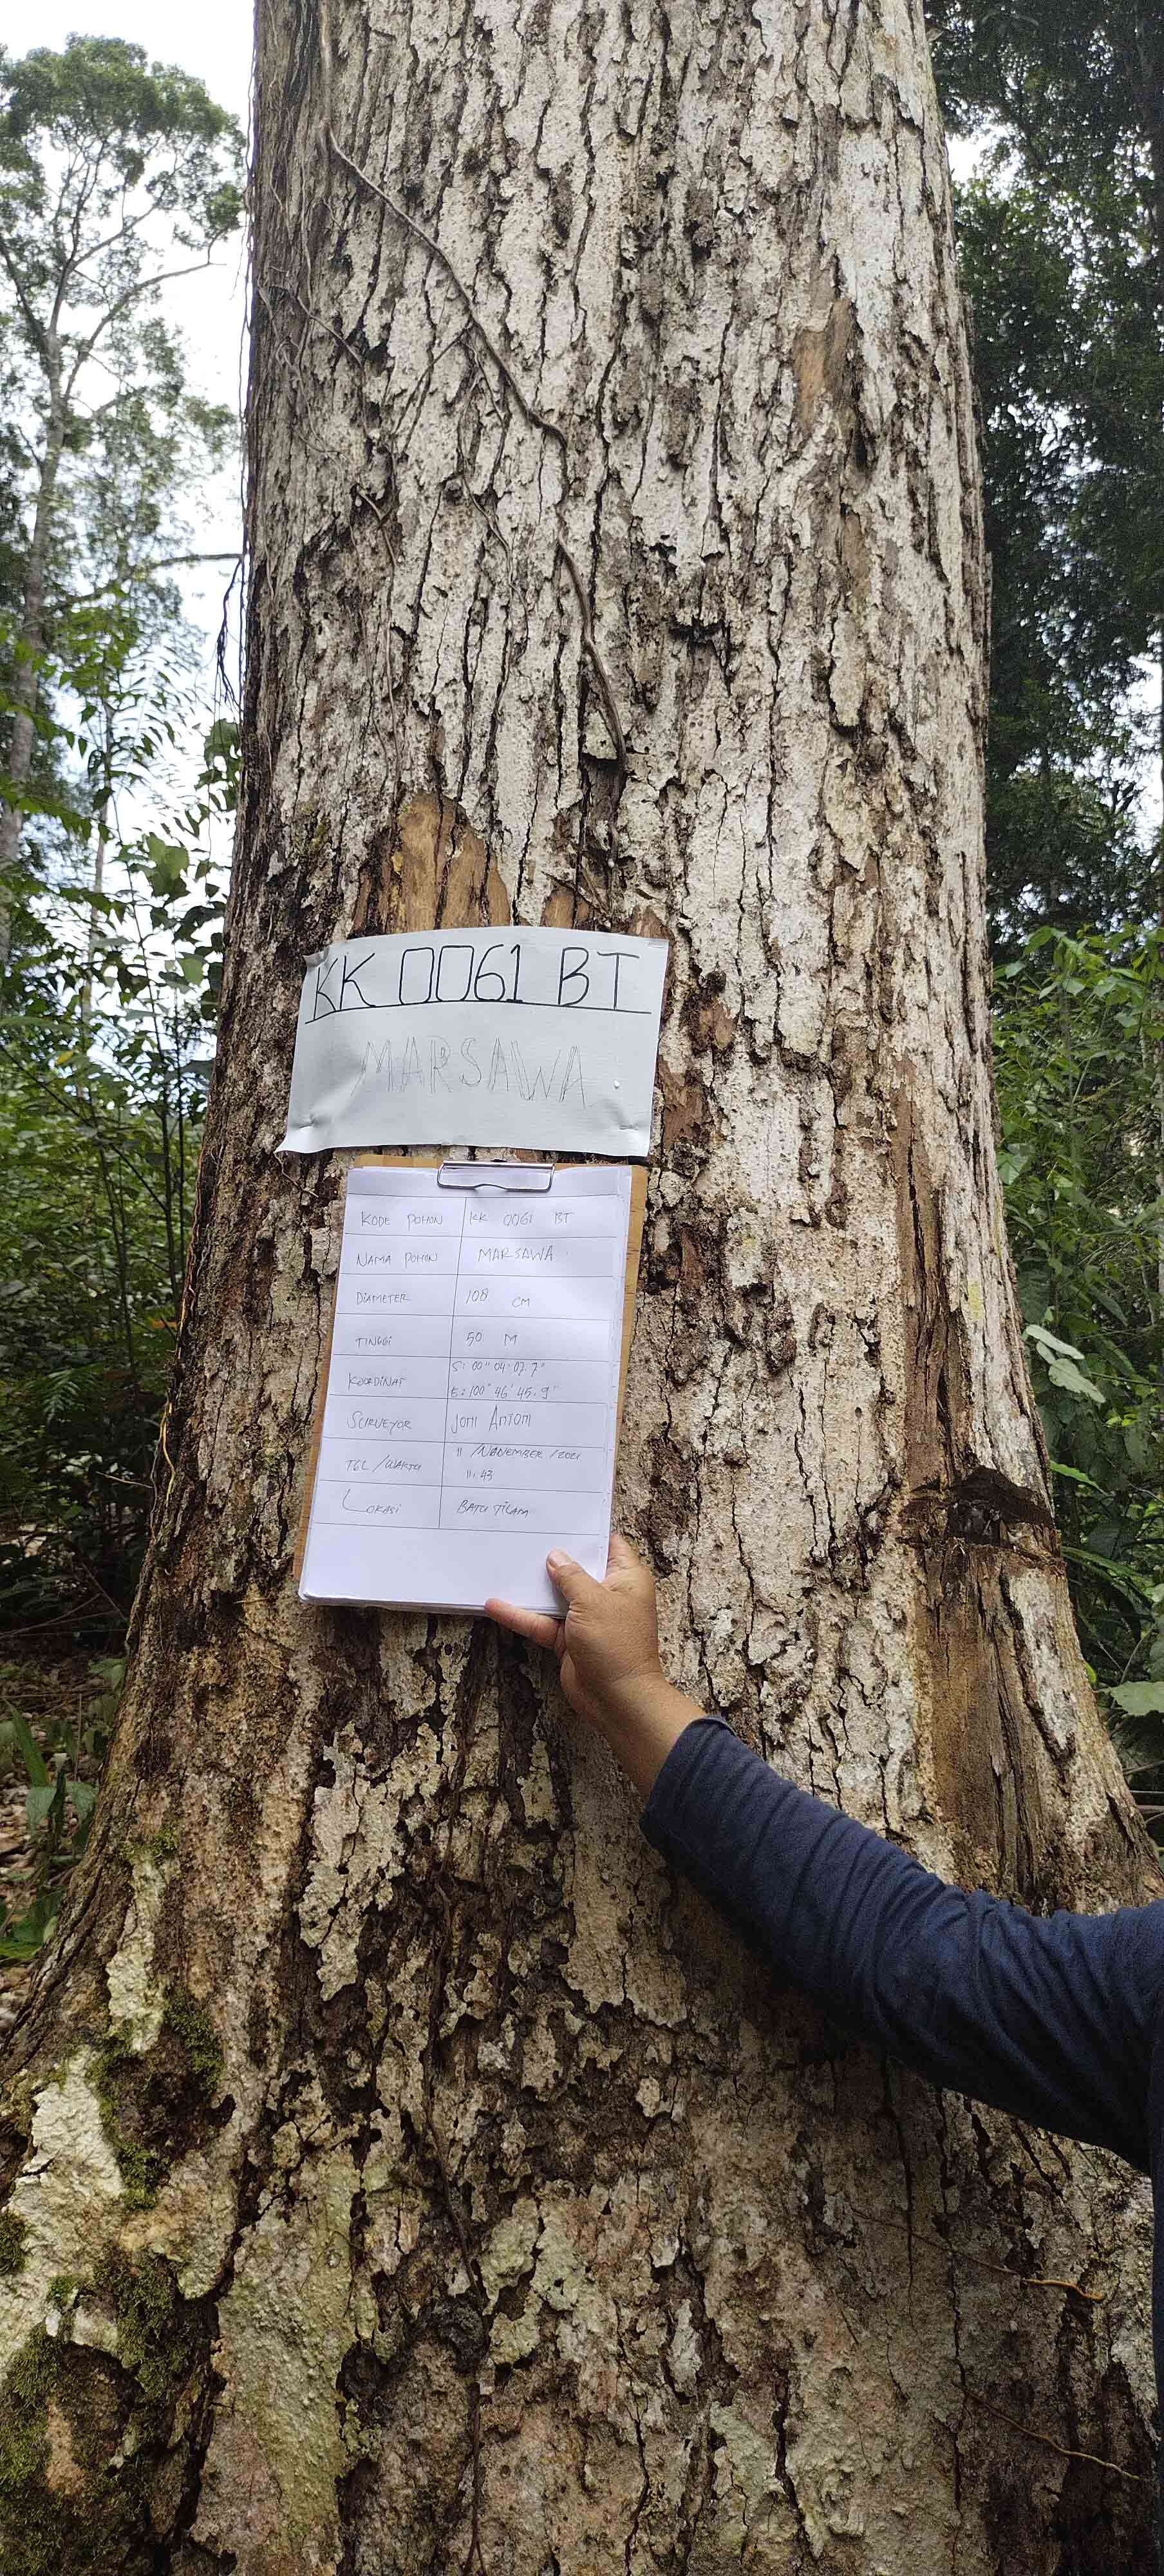 KK 0061 BT
MARSAWA
KODE POHON KK 0061 BT
NAMA POHON MARSAWA
DIAMETER 108 CM
TINGGI 50 M
KOORDINAT S: 00° 04' 07.7"
E: 100° 46' 45.9"
SURVEYOR JONI ANTONI
TGL/WAKTU 11/NOVEMBER/2021
11:43
LOKASI BATU TILAM